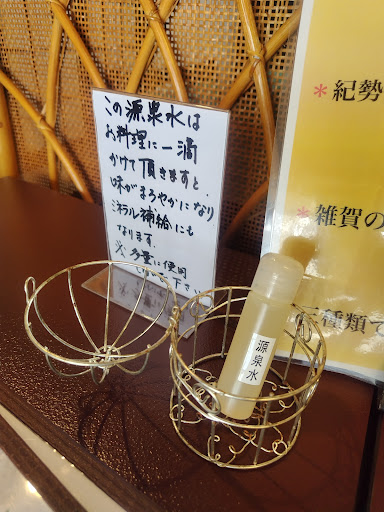 この源泉水は
お料理に一滴
かけて頂きますと、
味がまろやかになり
ミネラル補給にも
なります。
※多量に使用
下さい
源泉水
*紀勢
*雑賀の
三種類で